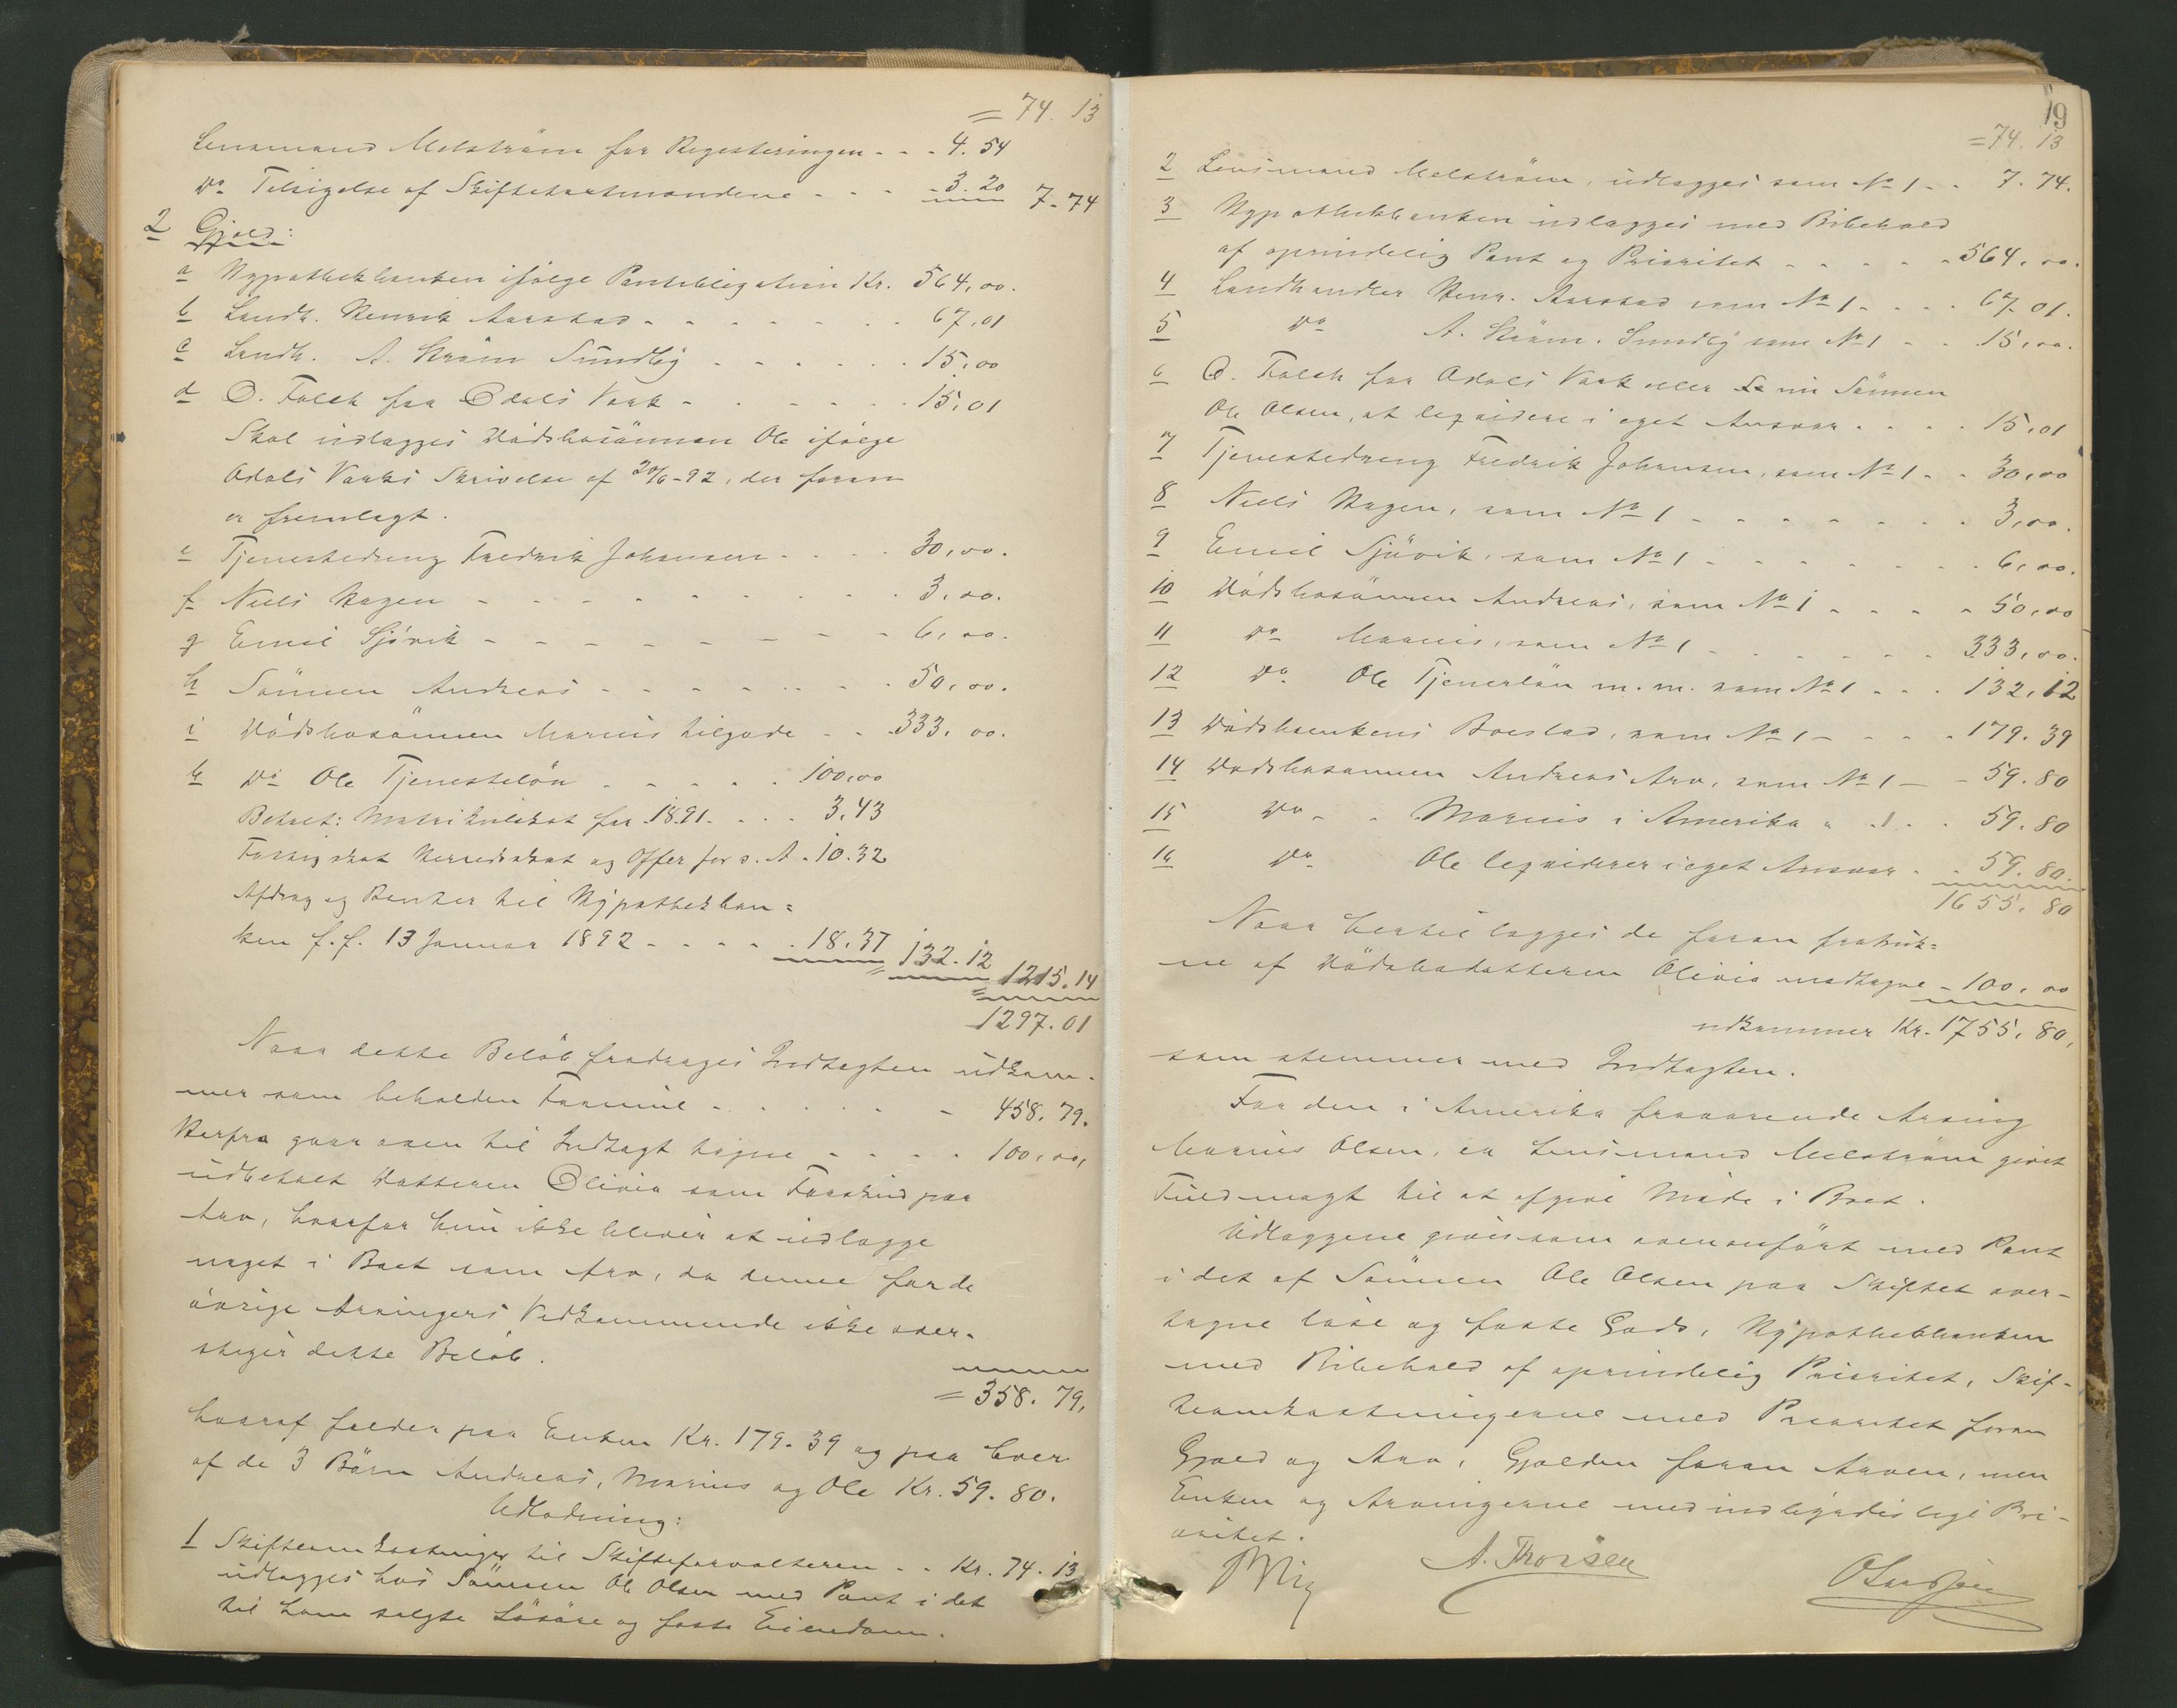 = 74. 13
Lensmand Melström for Registeringen - - - 4. 54
Do Tilsigelse af Skiftetaxtmændene - - - - 3. 20 7. 74
2 Gjæld:
a Hypothekbanken ifølge Pantobligation Kr. 564,00.
b Landh. Henrik Aarstad - - - - - - - 67,01
c Landh. A. Strøm Sündby - - - - - - 15,00
d O. Falch for Odals Værk - - - - - - 15,01
Skal udlægges Dödsbosönnen Ole ifølge
Odals Værks Skrivelse af 20/6-92, der foran
er fremlagt.
e Tjenestedreng Fredrik Johansen - - - - 30,00.
f Niels Hagen - - - - - - - - - - 3,00.
g Emil Sjövik - - - - - - - - - 6,00.
h Sönnen Andreas - - - - - - - - 50,00.
i Dödsbosönnen Marius tilgode - - - 333,00.
k Do Ole Tjenestelön - - - - - 100,00
Betalt: Matrikulskat for 1891. - - - 3,43
Fattigskat Herredskat og Offer for s. A. - 10.32
Afdrag og Renter til Hypothekban=
ken f. f. 13 Januar 1892 - - - - - 18.37 132. 12 1215. 14
1297. 01
Naar dette Beløb fradrages Indtægten udkom-
mer som beholden Formue - - - - - - 458. 79.
Herfra gaar oven til Indtægt tagne - - - - 100,00,
udbetalt Datteren Olivia som Forskud paa
Arv, hvorfor hun ikke bliver at udlægge
noget i Boet som Arv, da denne for de
övrige Arvingers Vedkommende ikke over-
stiger dette Beløb.
= 358. 79,
hvoraf falder paa Enken Kr. 179. 39 og paa hver
af de 3 Börn Andreas, Marius og Ole Kr. 59. 80.
Udlodning:
1 Skifteomkostninger til Skifteforvalteren - - Kr. 74. 13
udlægges hos Sönnen Ole Olsen med Pant i det
til ham solgte Lösöre og faste Eiendom.
19
= 74. 13
2 Lensmand Melström, udlægges som No 1 - - 7. 74.
3 Hypothekbanken udlægges med Bibehold
af oprindelig Pant og Prioritet - - - - - 564,00.
4 Landhandler Henr. Aarstad som No 1 - - - - 67. 01.
5 Do A. Strøm. Sundby som No 1 - - 15,00.
6 O. Falch for Odals Værk eller Sönnen
Ole Olsen, at leqvidere i eget Ansvar - - - - 15,01
7 Tjenestedreng Fredrik Johansen, som No 1 - - 30,00
8 Niels Hagen, som No 1 - - - - - - - - 3,00.
9 Emil Sjövik, som No 1 - - - - - - - - 6,00.
10 Dödsbosönnen Andreas, som No 1 - - - - 50,00
11 Do Marius, som No 1 - - - - - - - 333,00.
12 Do Ole Tjenerlön m. m. som No 1 - - - 132,12
13 Dödsboenkens Boeslod, som No 1 - - - - 179. 39
14 Dødsbosønnen Andreas Arv, som No 1 - - 59. 80
15 Do - - Marius i Amerika " " 1 - - 59. 80
16 Do Ole leqviderer i eget Ansvar - - 59. 80.
1655. 80
Naar hertil lægges de foran fratruk=
ne af Dödsbodatteren Olivia modtagne - 100,00
udkommer Kr. 1755. 80,
som stemmer med Indtægten.
For den i Amerika fraværende Arving
Marius Olsen, er Lensmand Melström givet
Fuldmagt til at afgive Möde i Boet.
Udlæggene gives som ovenanfört med Pant
i det af Sönnen Ole Olsen paa Skiftet over-
tagne löse og faste Gods, Hypothekbanken
med Bibehold af oprindelig Prioritet, Skif-
teomkostningerne med Prioritet foran
Gjæld og Arv, Gjælden foran Arven, men
Enken og Arvingerne med indbyrdes lige Pri-
oritet.
A. Thorsen